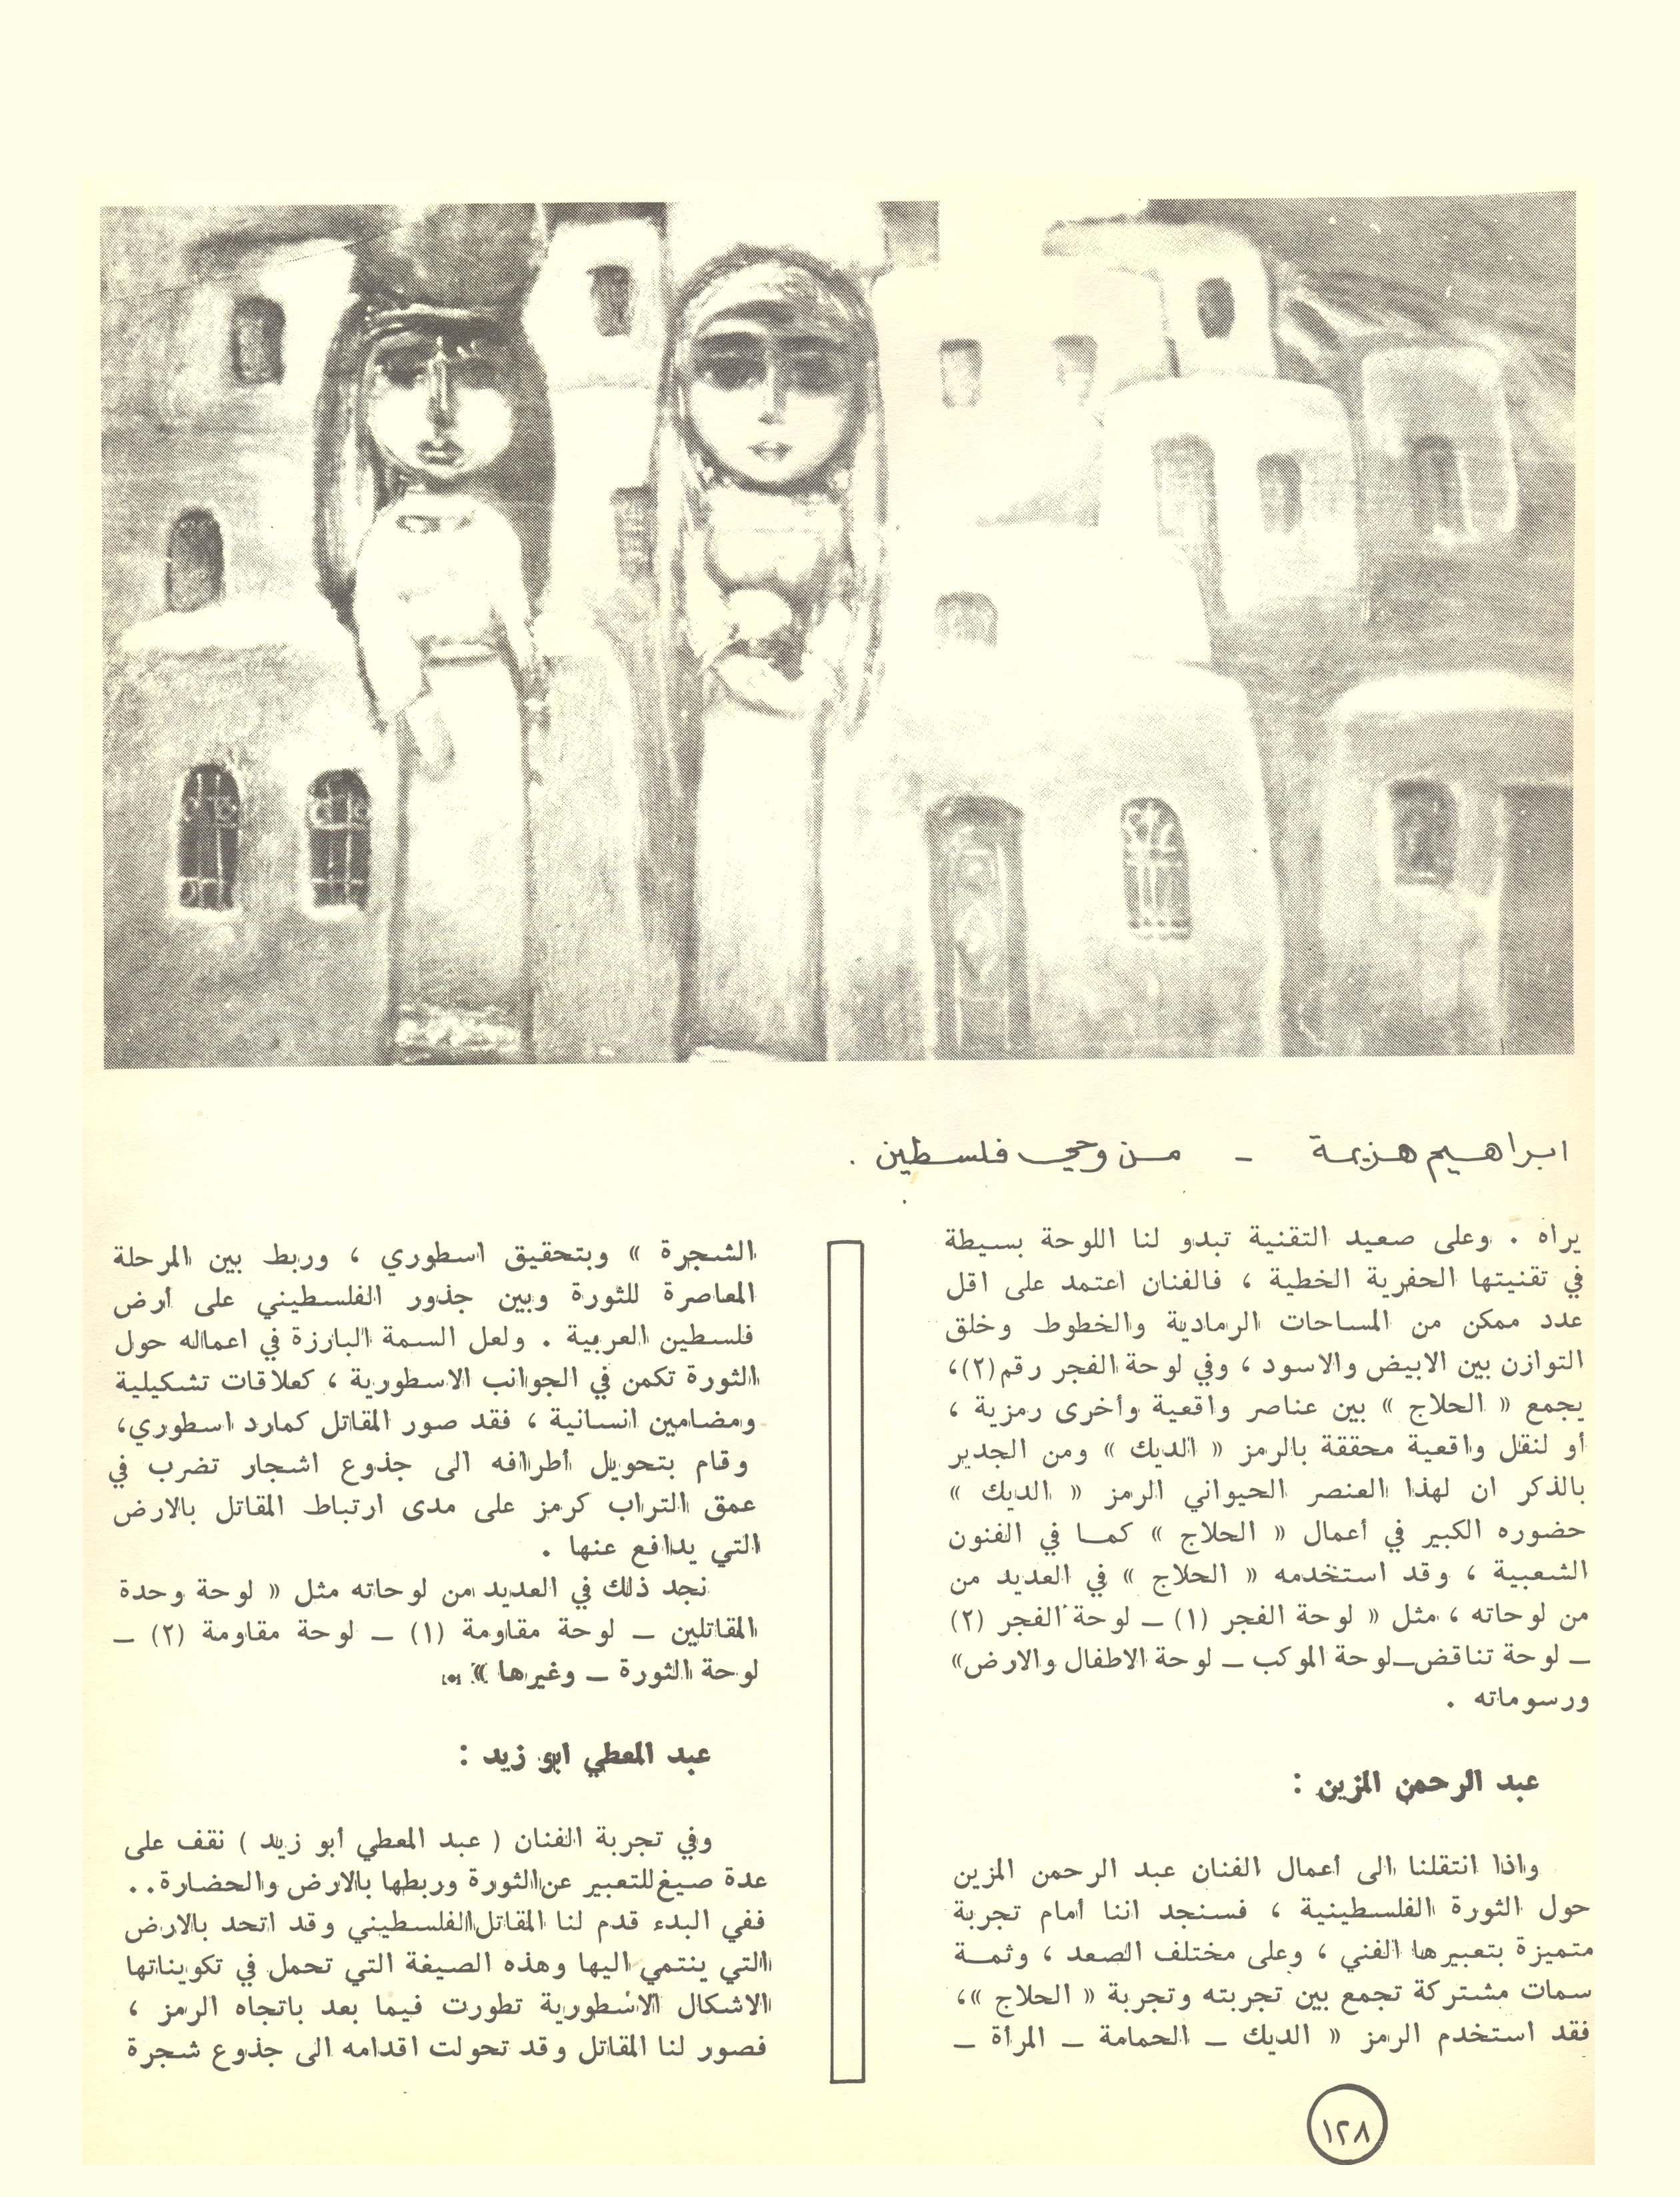 ابراهيم هزيمة - من وحي فلسطين .
يراه . وعلى صعيد التقنية تبدو لنا اللوحة بسيطة
في تقنيتها الحفرية الخطية ، فالفنان اعتمد على اقل
عدد ممكن من المساحات الرمادية والخطوط وخلق
التوازن بين الابيض والاسود ، وفي لوحة الفجر رقم (٢)،
يجمع « الحلاج » بين عناصر واقعية وأخرى رمزية ،
أو لنقل واقعية محققة بالرمز « الديك » ومن الجدير
بالذكر ان لهذا العنصر الحيواني الرمز « الديك »
حضوره الكبير في أعمال « الحلاج » كما في الفنون
الشعبية ، وقد استخدمه « الحلاج » في العديد من
من لوحاته ، مثل « لوحة الفجر (١) – لوحة الفجر (٢)
– لوحة تناقض – لوحة الموكب – لوحة الاطفال والارض»
ورسوماته .
عبد الرحمن المزين :
واذا انتقلنا الى أعمال الفنان عبد الرحمن المزين
حول الثورة الفلسطينية ، فسنجد اننا أمام تجربة
متميزة بتعبيرها الفني ، وعلى مختلف الصعد ، وثمة
سمات مشتركة تجمع بين تجربته وتجربة « الحلاج »،
فقد استخدم الرمز « الديك – الحمامة – المرأة –
الشجرة » وبتحقيق اسطوري ، وربط بين المرحلة
المعاصرة للثورة وبين جذور الفلسطيني على أرض
فلسطين العربية . ولعل السمة البارزة في اعماله حول
الثورة تكمن في الجوانب الاسطورية ، كعلاقات تشكيلية
ومضامين انسانية ، فقد صور المقاتل كمارد اسطوري،
وقام بتحويل أطرافه الى جذوع اشجار تضرب في
عمق التراب كرمز على مدى ارتباط المقاتل بالارض
التي يدافع عنها .
نجد ذلك في العديد من لوحاته مثل « لوحة وحدة
المقاتلين – لوحة مقاومة (١) – لوحة مقاومة (٢) –
لوحة الثورة – وغيرها »
عبد المعطي ابو زيد :
وفي تجربة الفنان ( عبد المعطي أبو زيد ) نقف على
عدة صيغ للتعبير عن الثورة وربطها بالارض والحضارة..
ففي البدء قدم لنا المقاتل الفلسطيني وقد اتحد بالارض
التي ينتمي اليها وهذه الصيغة التي تحمل في تكويناتها
الاشكال الاسطورية تطورت فيما بعد باتجاه الرمز ،
فصور لنا المقاتل وقد تحولت اقدامه الى جذوع شجرة
١٢٨